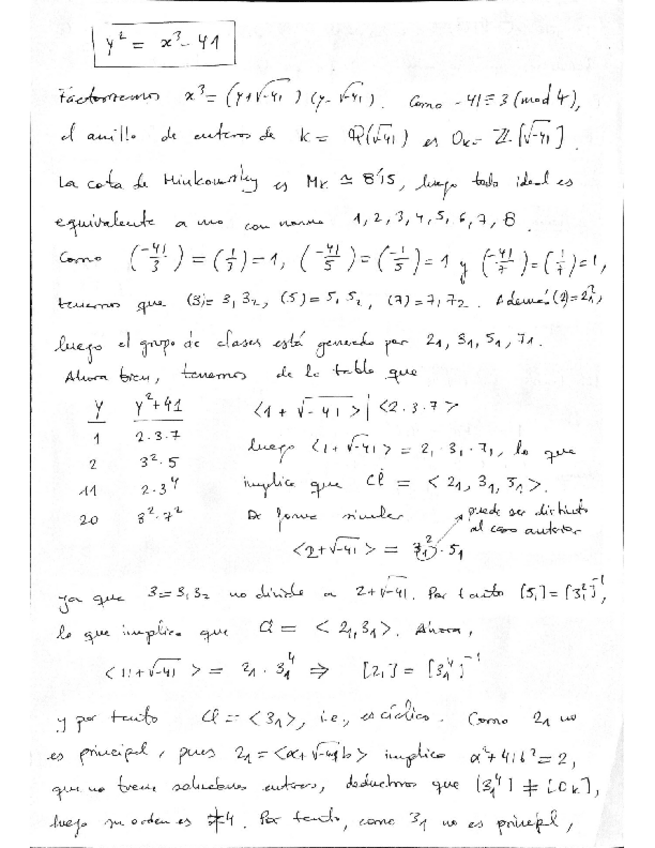 y² = x³ - 41
Factorizamos x³ = (y+√-41)(y-√-41). Como -41 ≡ 3 (mod 4),
el anillo de enteros de K = Q(√-41) es O_K = Z[√-41].
La cota de Minkowsky es M_K ≃ 8'15, luego todo ideal es
equivalente a uno con norma 1, 2, 3, 4, 5, 6, 7, 8
Como (-41/3) = (1/3) = 1, (-41/5) = (-1/5) = 1 y (-41/7) = (1/7) = 1,
tenemos que (3) = 3₁ 3₂, (5) = 5₁ 5₂, (7) = 7₁ 7₂. Además (2) = 2₁²,
luego el grupo de clases está generado por 2₁, 3₁, 5₁, 7₁.
Ahora bien, tenemos de la tabla que
y y²+41 <1+√-41> | <2·3·7>
1 2·3·7 luego <1+√-41> = 2₁·3₁·7₁, lo que
2 3²·5
11 2·3⁴ implica que Cl = <2₁, 3₁, 5₁>.
20 8²·7² De forma similar puede ser distinto
al caso anterior
<2+√-41> = 3₁²·5₁
ya que 3 = 3₁3₂ no divide a 2+√-41. Por tanto [5₁] = [3₁²]⁻¹,
lo que implica que Cl = <2₁, 3₁>. Ahora,
<11+√-41> = 2₁·3₁⁴ ⇒ [2₁] = [3₁⁴]⁻¹
y por tanto Cl = <3₁>, i.e., es cíclico. Como 2₁ no
es principal, pues 2₁ = <a+√-41b> implica a²+41b² = 2,
que no tiene soluciones enteras, deducimos que [3₁⁴] ≠ [O_K],
luego su orden es ≠4. Por tanto, como 3₁ no es principal,